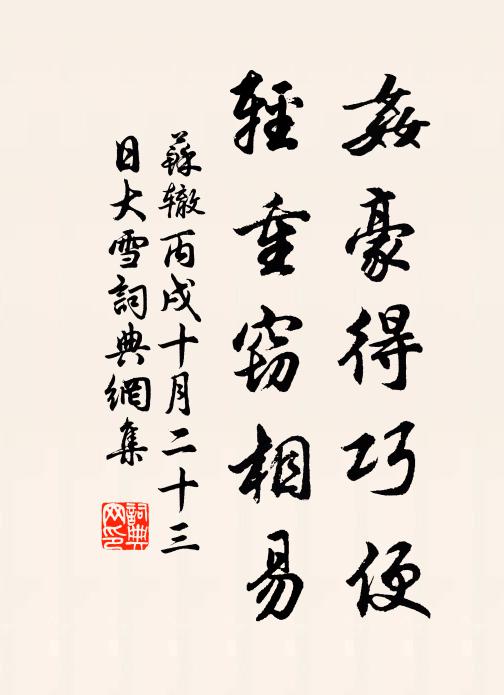 姦豪得巧便
輕重竊相易
蘇辙丙戌十月二十三
日大雪詞典網集
詞典
网印